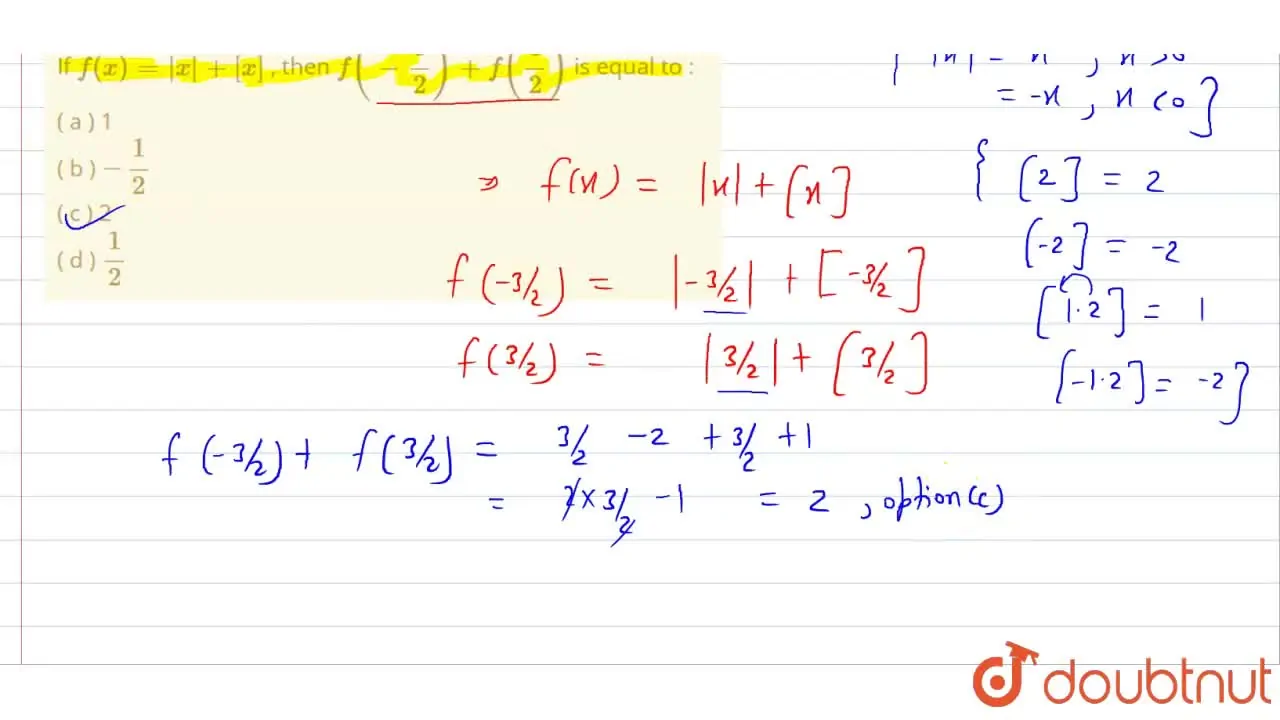 If f(x) = |x| + [x] , then f(− /2) + f( /2) is equal to :
( a ) 1
( b ) − 1/2
( c ) 2
( d ) 1/2
|x| = x , x >0
= -x , x <0 ]
⇒ f(x) = |x| + [x]
{ [2] = 2
[-2] = -2
[1.2] = 1
[-1.2] = -2 }
f(-3/2) = |-3/2| + [-3/2]
f(3/2) = |3/2| + [3/2]
f(-3/2) + f(3/2) = 3/2 -2 + 3/2 + 1
= 2 × 3/2 - 1 = 2 , option(c)
doubtnut